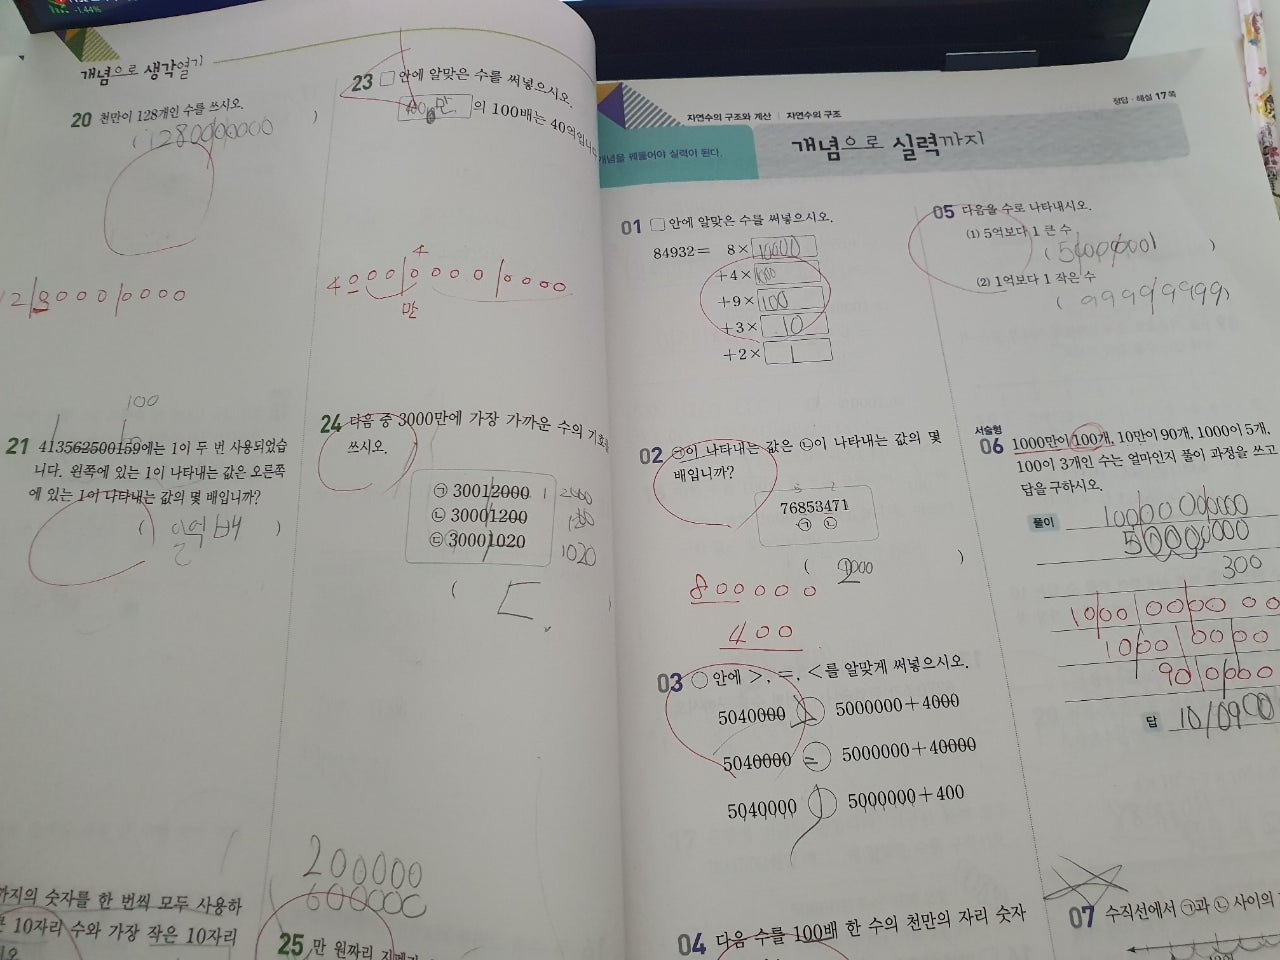 -1.44%
개념으로 생각열기
20 천만이 128개인 수를 쓰시오.
( 1280000000 )
12|8000|0000
100
21 413562500159에는 1이 두 번 사용되었습
니다. 왼쪽에 있는 1이 나타내는 값은 오른쪽
에 있는 1이 나타내는 값의 몇 배입니까?
( 일억 배 )
까지의 숫자를 한 번씩 모두 사용하
10자리 수와 가장 작은 10자리
23 □ 안에 알맞은 수를 써넣으시오.
만 의 100배는 40억입니다
4
4000|0000|0000
만
24 다음 중 3000만에 가장 가까운 수의 기호를
쓰시오.
㉠ 30012000
㉡ 30001200
㉢ 30001020 1020
( ㄷ )
200000
600000
25 만 원짜리 지폐가
정답·해설 17쪽
자연수의 구조와 계산 | 자연수의 구조
개념을 꿰뚫어야 실력이 된다.
개념으로 실력까지
01 □ 안에 알맞은 수를 써넣으시오.
84932= 8×10000
+4×1000
+9×100
+3×10
+2×1
02 ㉠이 나타내는 값은 ㉡이 나타내는 값의 몇
배입니까?
76853471
㉠ ㉡
( 2000 )
800000
400
03 ○ 안에 >, =, <를 알맞게 써넣으시오.
5040000 > 5000000+4000
5040000 = 5000000+40000
5040000 5000000+400
04 다음 수를 100배 한 수의 천만의 자리 숫자
05 다음을 수로 나타내시오.
(1) 5억보다 1 큰 수
( 500000001 )
(2) 1억보다 1 작은 수
( 99999999 )
서술형
06 1000만이 100개, 10만이 90개, 1000이 5개,
100이 3개인 수는 얼마인지 풀이 과정을 쓰고
답을 구하시오.
풀이
300
답
07 수직선에서 ㉠과 ㉡ 사이의